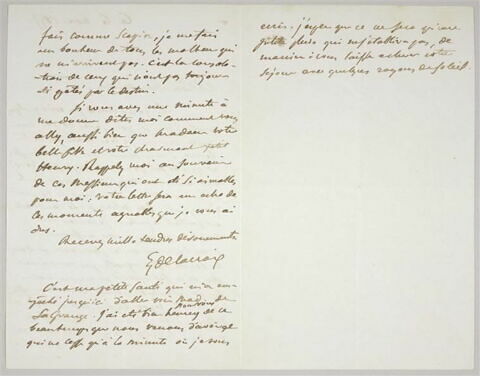 fais comme Scapin : je me fais
un bonheur de tous les malheurs qui
ne m'arrivent pas. C'est la consola-
tion de ceux qui n'ont pas toujours
été gâtés par le destin.
Si vous avez une minute à
me donner dites moi comment vous
allez, aussi bien que madame votre
belle fille et votre charmant petit
Henry. Rappelez moi au souvenir
de ces Messieurs qui ont été si aimables
pour moi : votre lettre sera un écho de
ces moments agréables que je vous ai
dus.
Recevez mille tendres dévouements
EDelacroix
C'est ma petite santé qui m'a em-
pêché jusqu'ici d'aller voir Madme de
La Grange. J'ai été bien heureux de ce
beau temps que nous venons d'avoir
qui ne cesse qu'à la minute où je vous
écris. j'espère que ce ne sera qu'une
petite pluie qui rafraîchira pas, de
manière à vous laisse achever votre
séjour avec quelques rayons de soleil.